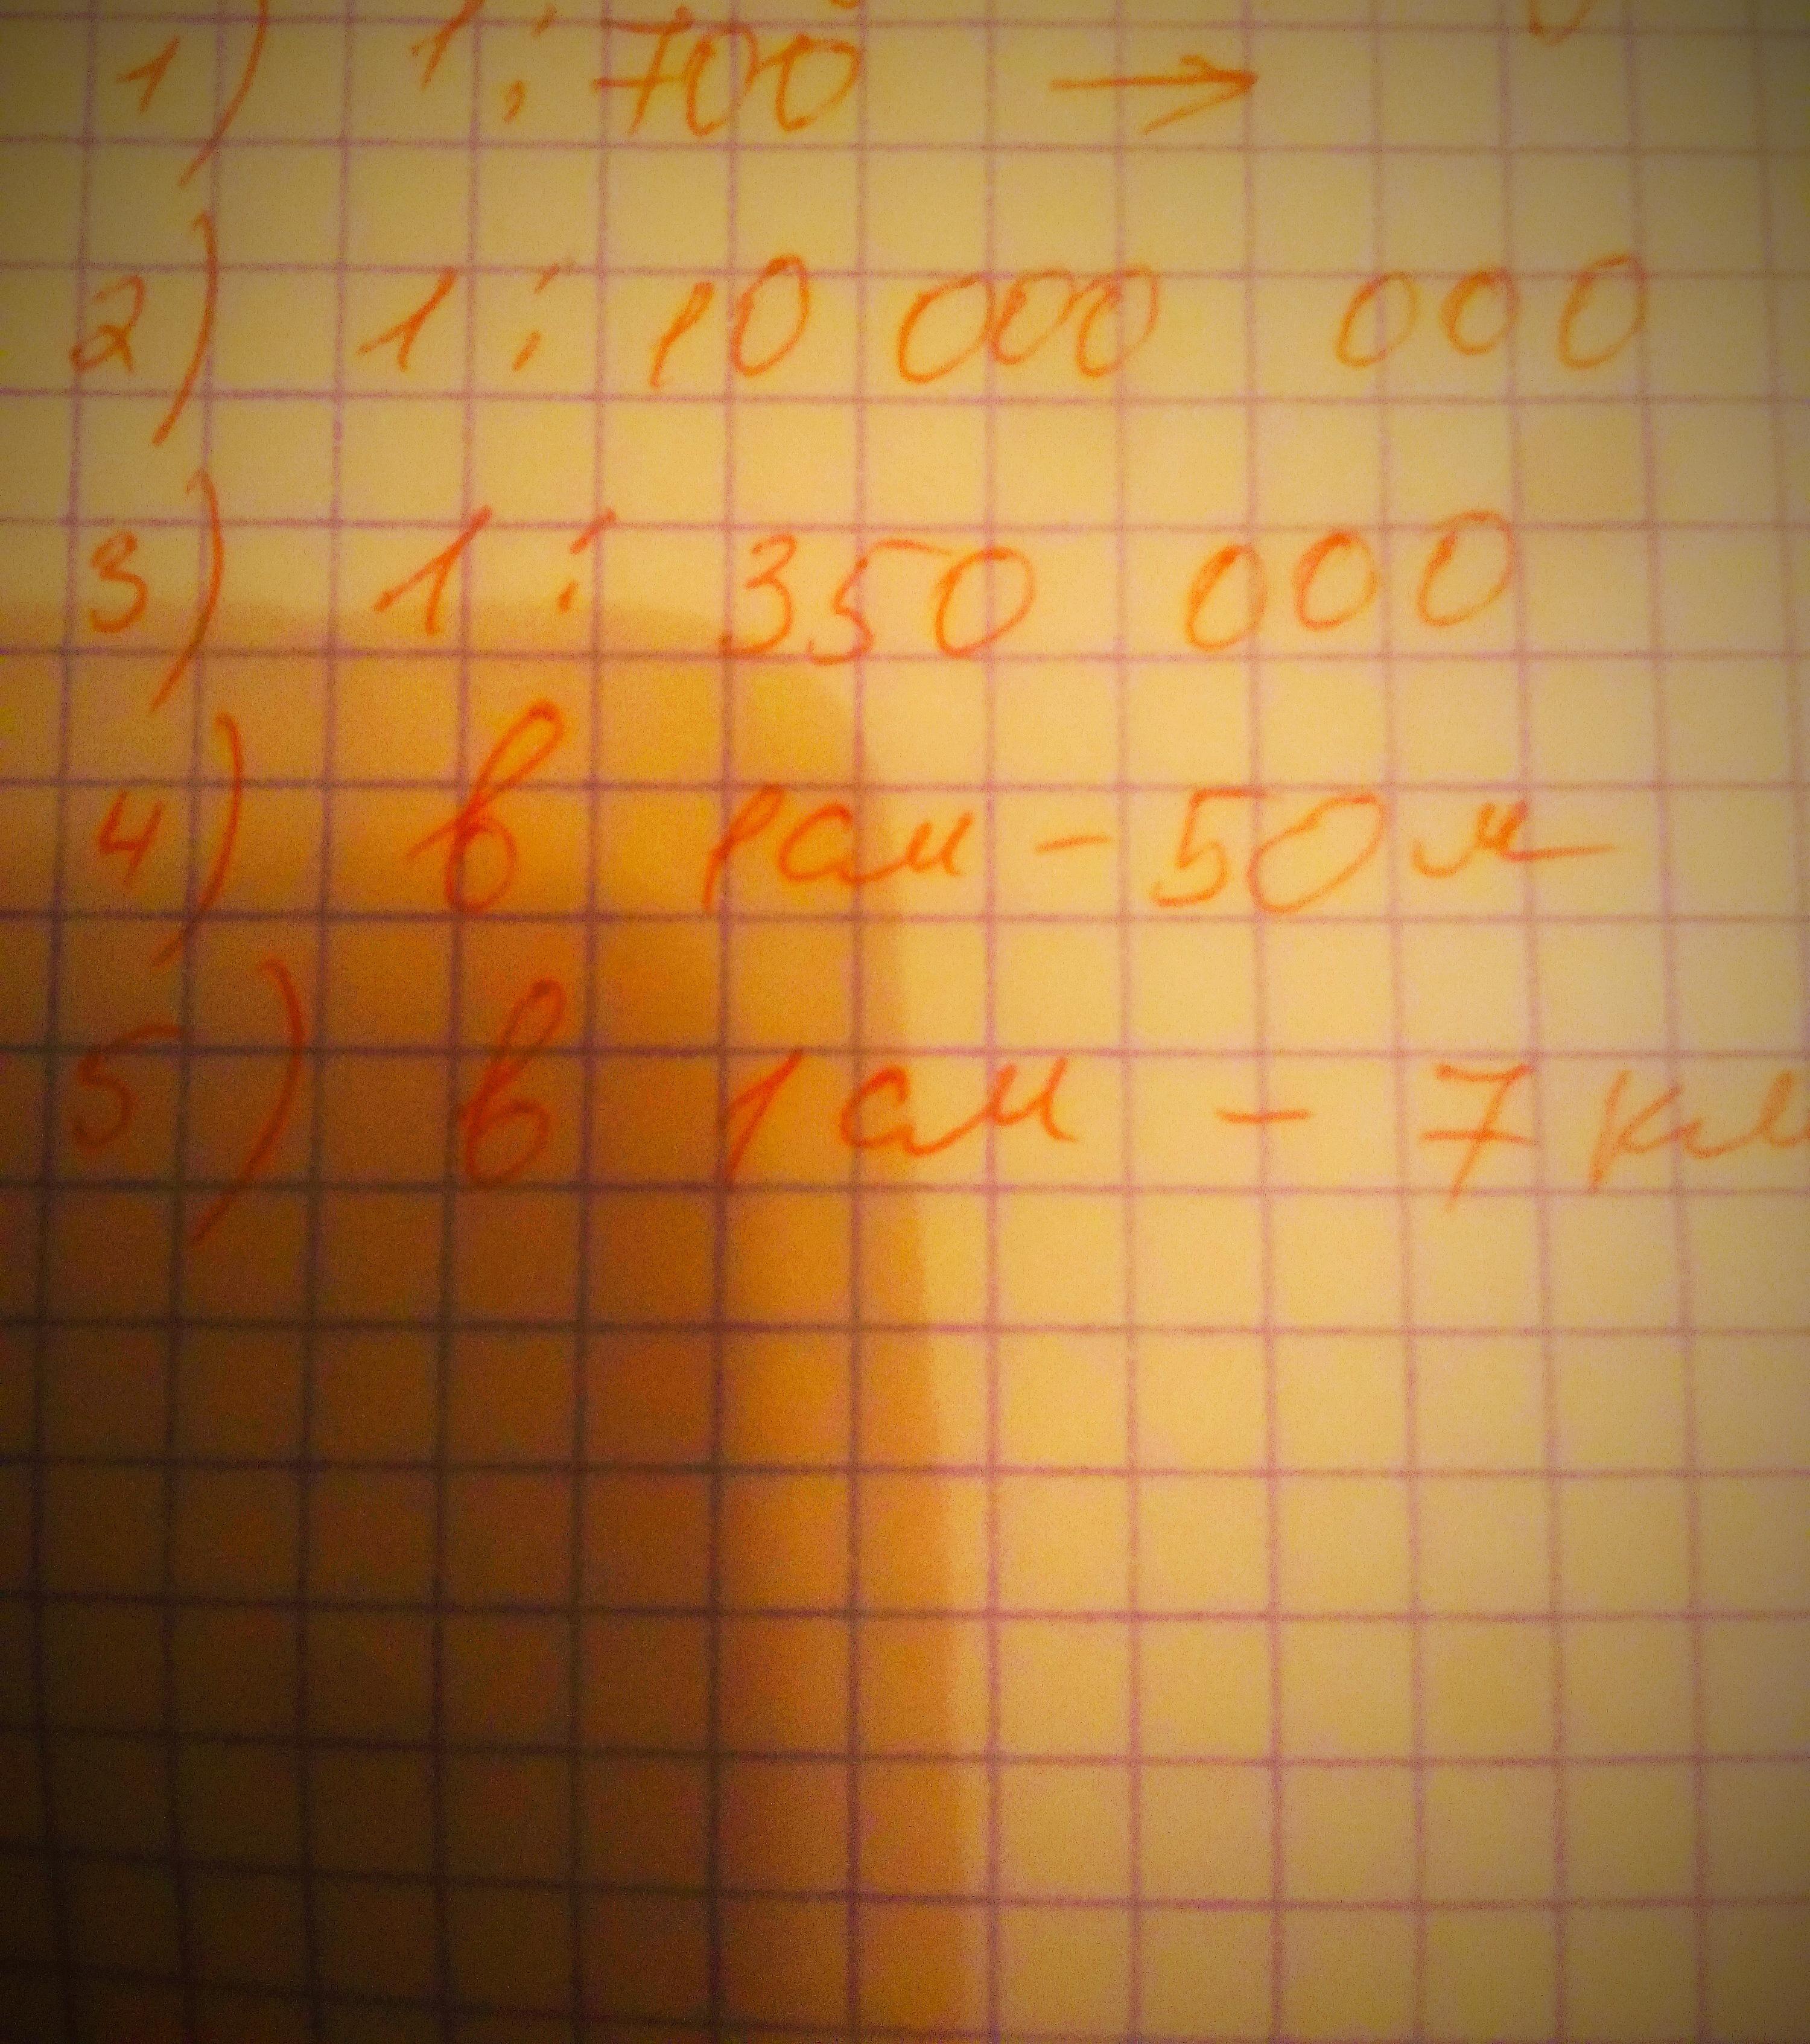 1) 1:700 →
2) 1:10 000 000
3) 1: 350 000
4) в 1см - 50 м
5) в 1 см - 7 км